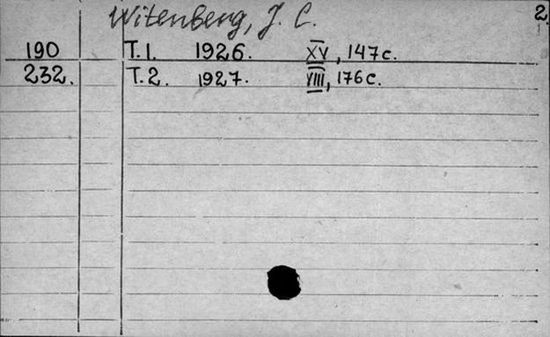 Witenberg, J. C. 2
190 T. 1. 1926. XV, 147 c.
232. T. 2. 1927. VIII, 176 c.